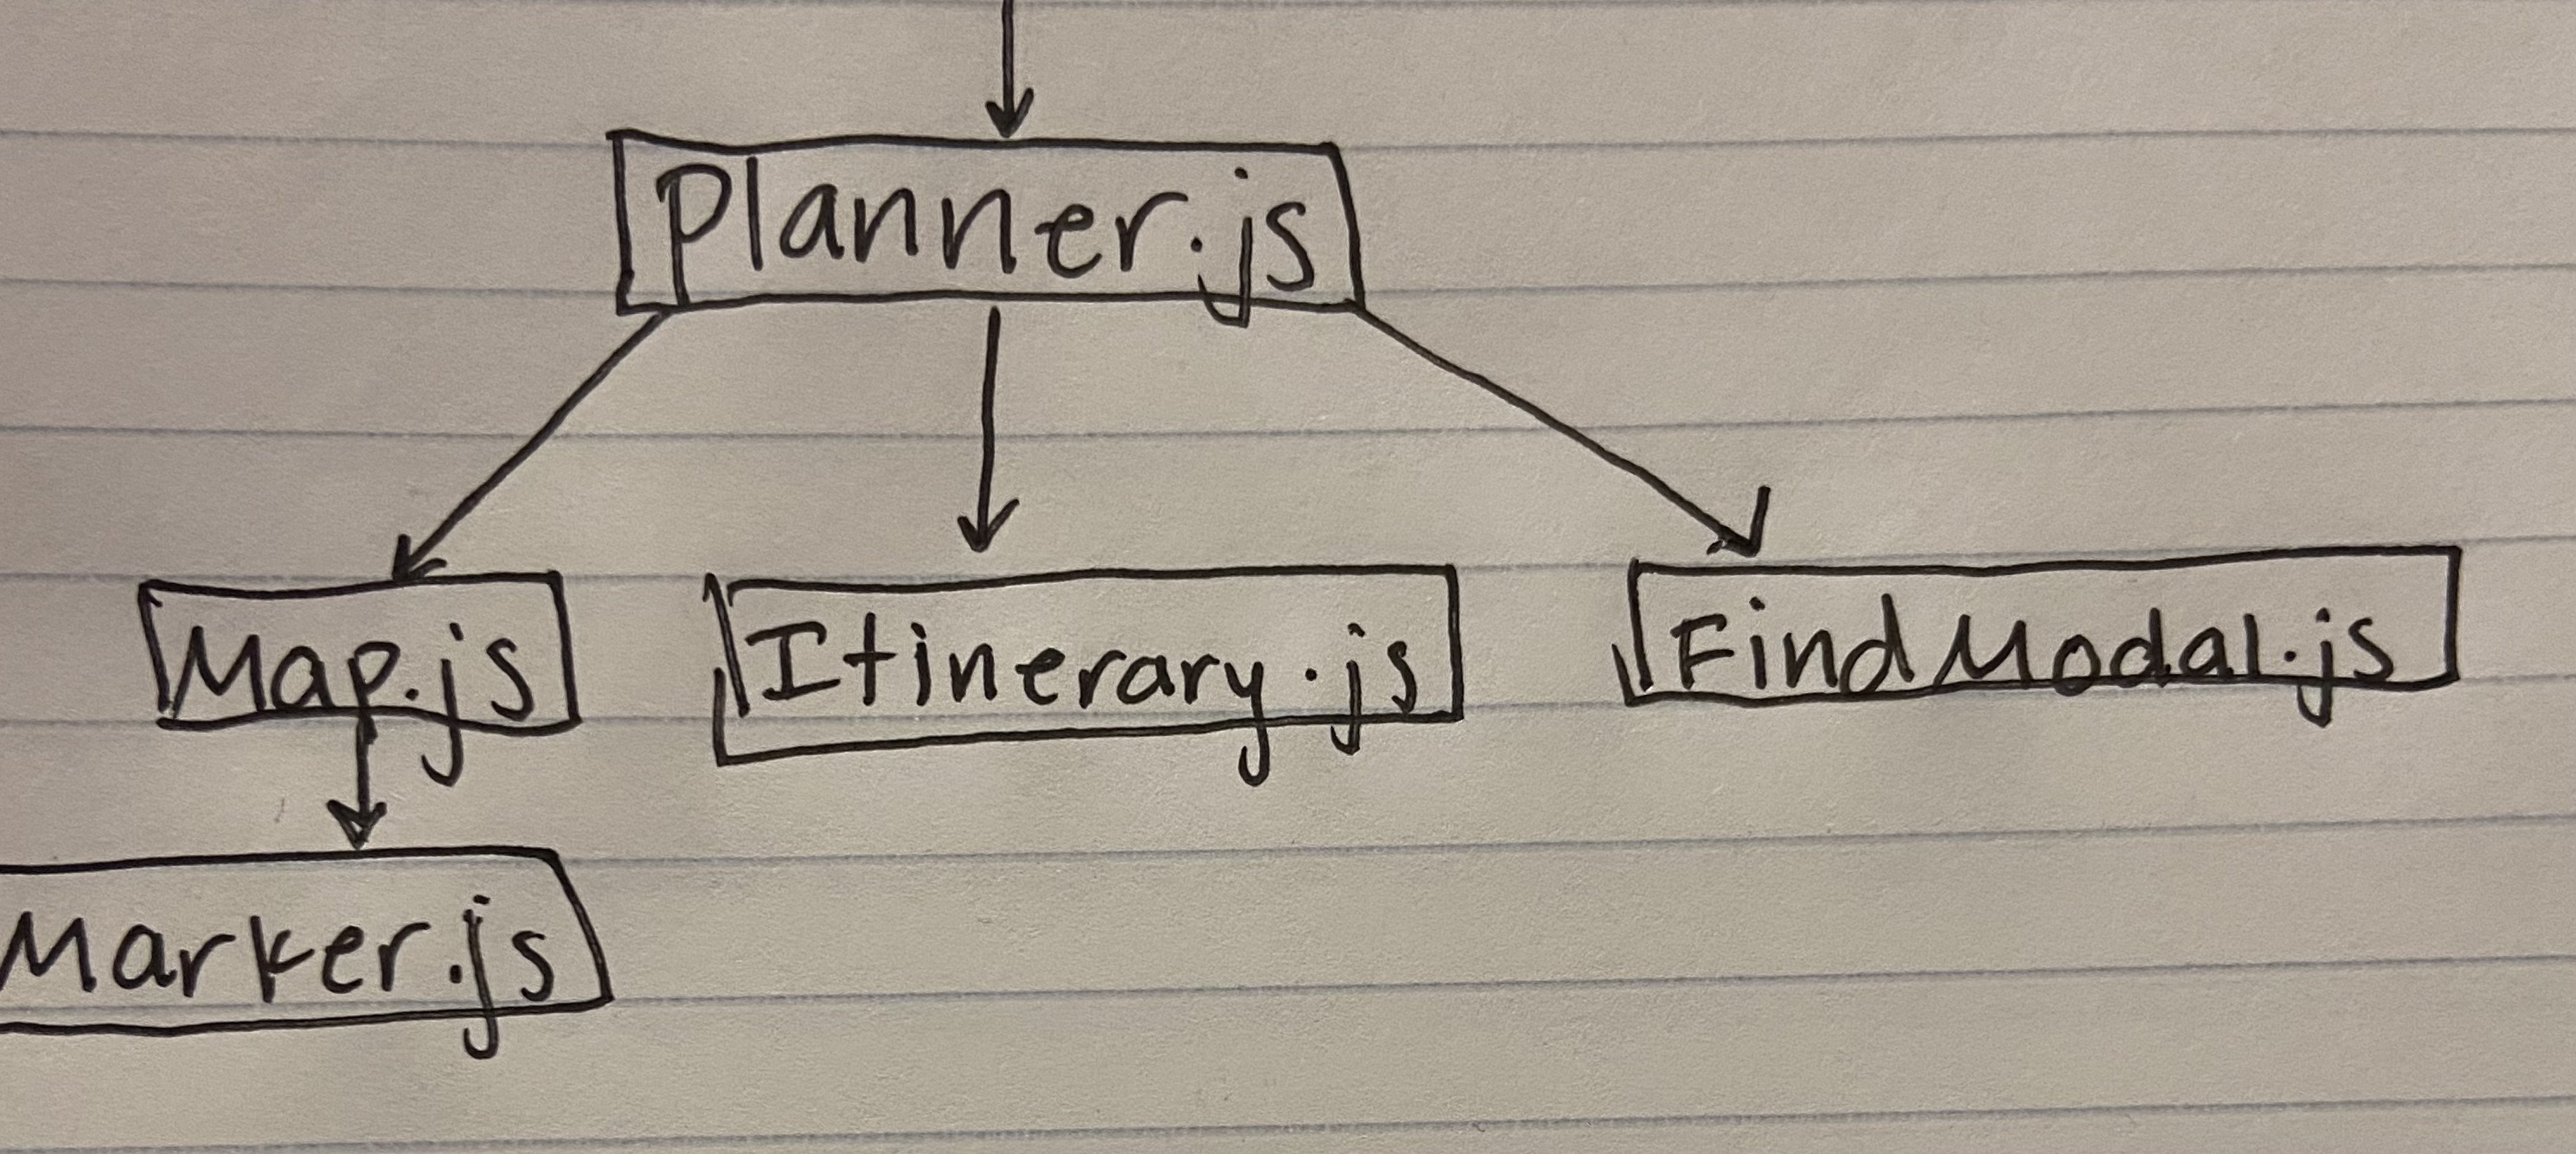 Planner.js
Map.js
Itinerary.js
FindModal.js
Marker.js